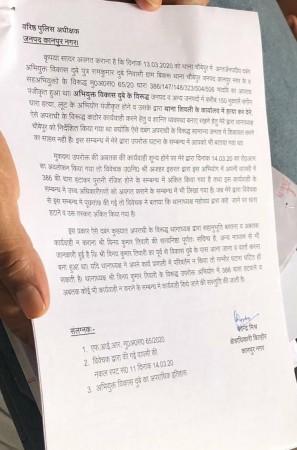 वरिष्ठ पुलिस अधीक्षक
जनपद कानपुर नगर।
कृपया सादर अवगत कराना है कि दिनांक 13.03.2020 को थाना चौबेपुर में
अभियुक्त विकास दुबे पुत्र रामकुमार दुबे निवासी ग्राम बिकरू थाना चौबेपुर जनपद कानपुर नगर के
विरूद्ध मु0अ0सं0 65/20 धारा 386/147/148/323/504/506 भादवि का अभियोग
पंजीकृत हुआ था। अभियुक्त विकास दुबे के विरूद्ध जनपद व अन्य जनपदों में करीब 150 मुकदमें संगीन
धारा हत्या, लूट के अभियोग पंजीकृत होने व उसके द्वारा थाना शिवली के कार्यालय में हत्या कर देने
ऐसे अपराधी के विरूद्ध कठोर कार्यवाही करने हेतु व शान्ति व्यवस्था बनाए रखने हेतु मेरे द्वारा थानाध्यक्ष
चौबेपुर को निर्देशित किया गया था क्योंकि ऐसे दबंग अपराधी के विरूद्ध सामान्य जनता में शिकायत करने
का साहस नही है। इस सम्बन्ध में मेरे द्वारा उपरोक्त घटना के सम्बन्ध में आपको भी बताया गया था।
मुकदमा उपरोक्त की अबतक की कार्यवाही शून्य होने पर मेरे द्वारा दिनांक 14.03.20 को
अवलोकन किया गया तो विवेचक उ0नि0 श्री अजहर इशरत द्वारा इस अभियोग में अपनी मनमर्जी से
386 की धारा हटाकर पुरानी रंजिश होने के सम्बन्ध में अंकित किया गया है तथा इस कार्यवाही के
सम्बन्ध में उच्च अधिकारियों को अवगत कराने के सम्बन्ध में भी लिखा गया है। जब मेरे द्वारा विवेचक
से इस सम्बन्ध में पूछताछ की गई तो विवेचक ने बताया कि थानाध्यक्ष महोदय द्वारा कहे जाने पर धारा
हटाने व उस तस्करा अंकित किया गया है।
इस प्रकार ऐसे दबंग कुख्यात अपराधी के विरूद्ध थानाध्यक्ष द्वारा सहानुभूति बरतना व अबतक
कार्यवाही न कराना श्री विनय कुमार तिवारी की सत्यनिष्ठा पूर्णतः संदिग्ध है। अन्य माध्यम से भी
जानकारी हुई है कि श्री विनय कुमार तिवारी का पूर्व से विकास दुबे के पास आना जाना व वार्ता करना
बना हुआ था। यदि थानाध्यक्ष ने अपने कार्य प्रणाली में परिवर्तन न किया तो गम्भीर घटना घटित हो
सकती है। थानाध्यक्ष श्री विनय कुमार तिवारी के विरूद्ध उपरोक्त अभियोग में 386 धारा हटवाने व
अबतक कोई भी कार्यवाही न करने के सम्बन्ध में कार्यवाही किये जाने की संस्तुति की जाती है।
संलग्नक:-
1. एफ.आई.आर. मु0अ0सं0 65/2020
2. विवेचक द्वारा की गई वापसी की
नकल रपट सं0 11 दिनांक 14.03.20
3. अभियुक्त विकास दुबे का अपराधिक इतिहास
देवेन्द्र मिश्र
क्षेत्राधिकारी बिल्हौर
कानपुर नगर